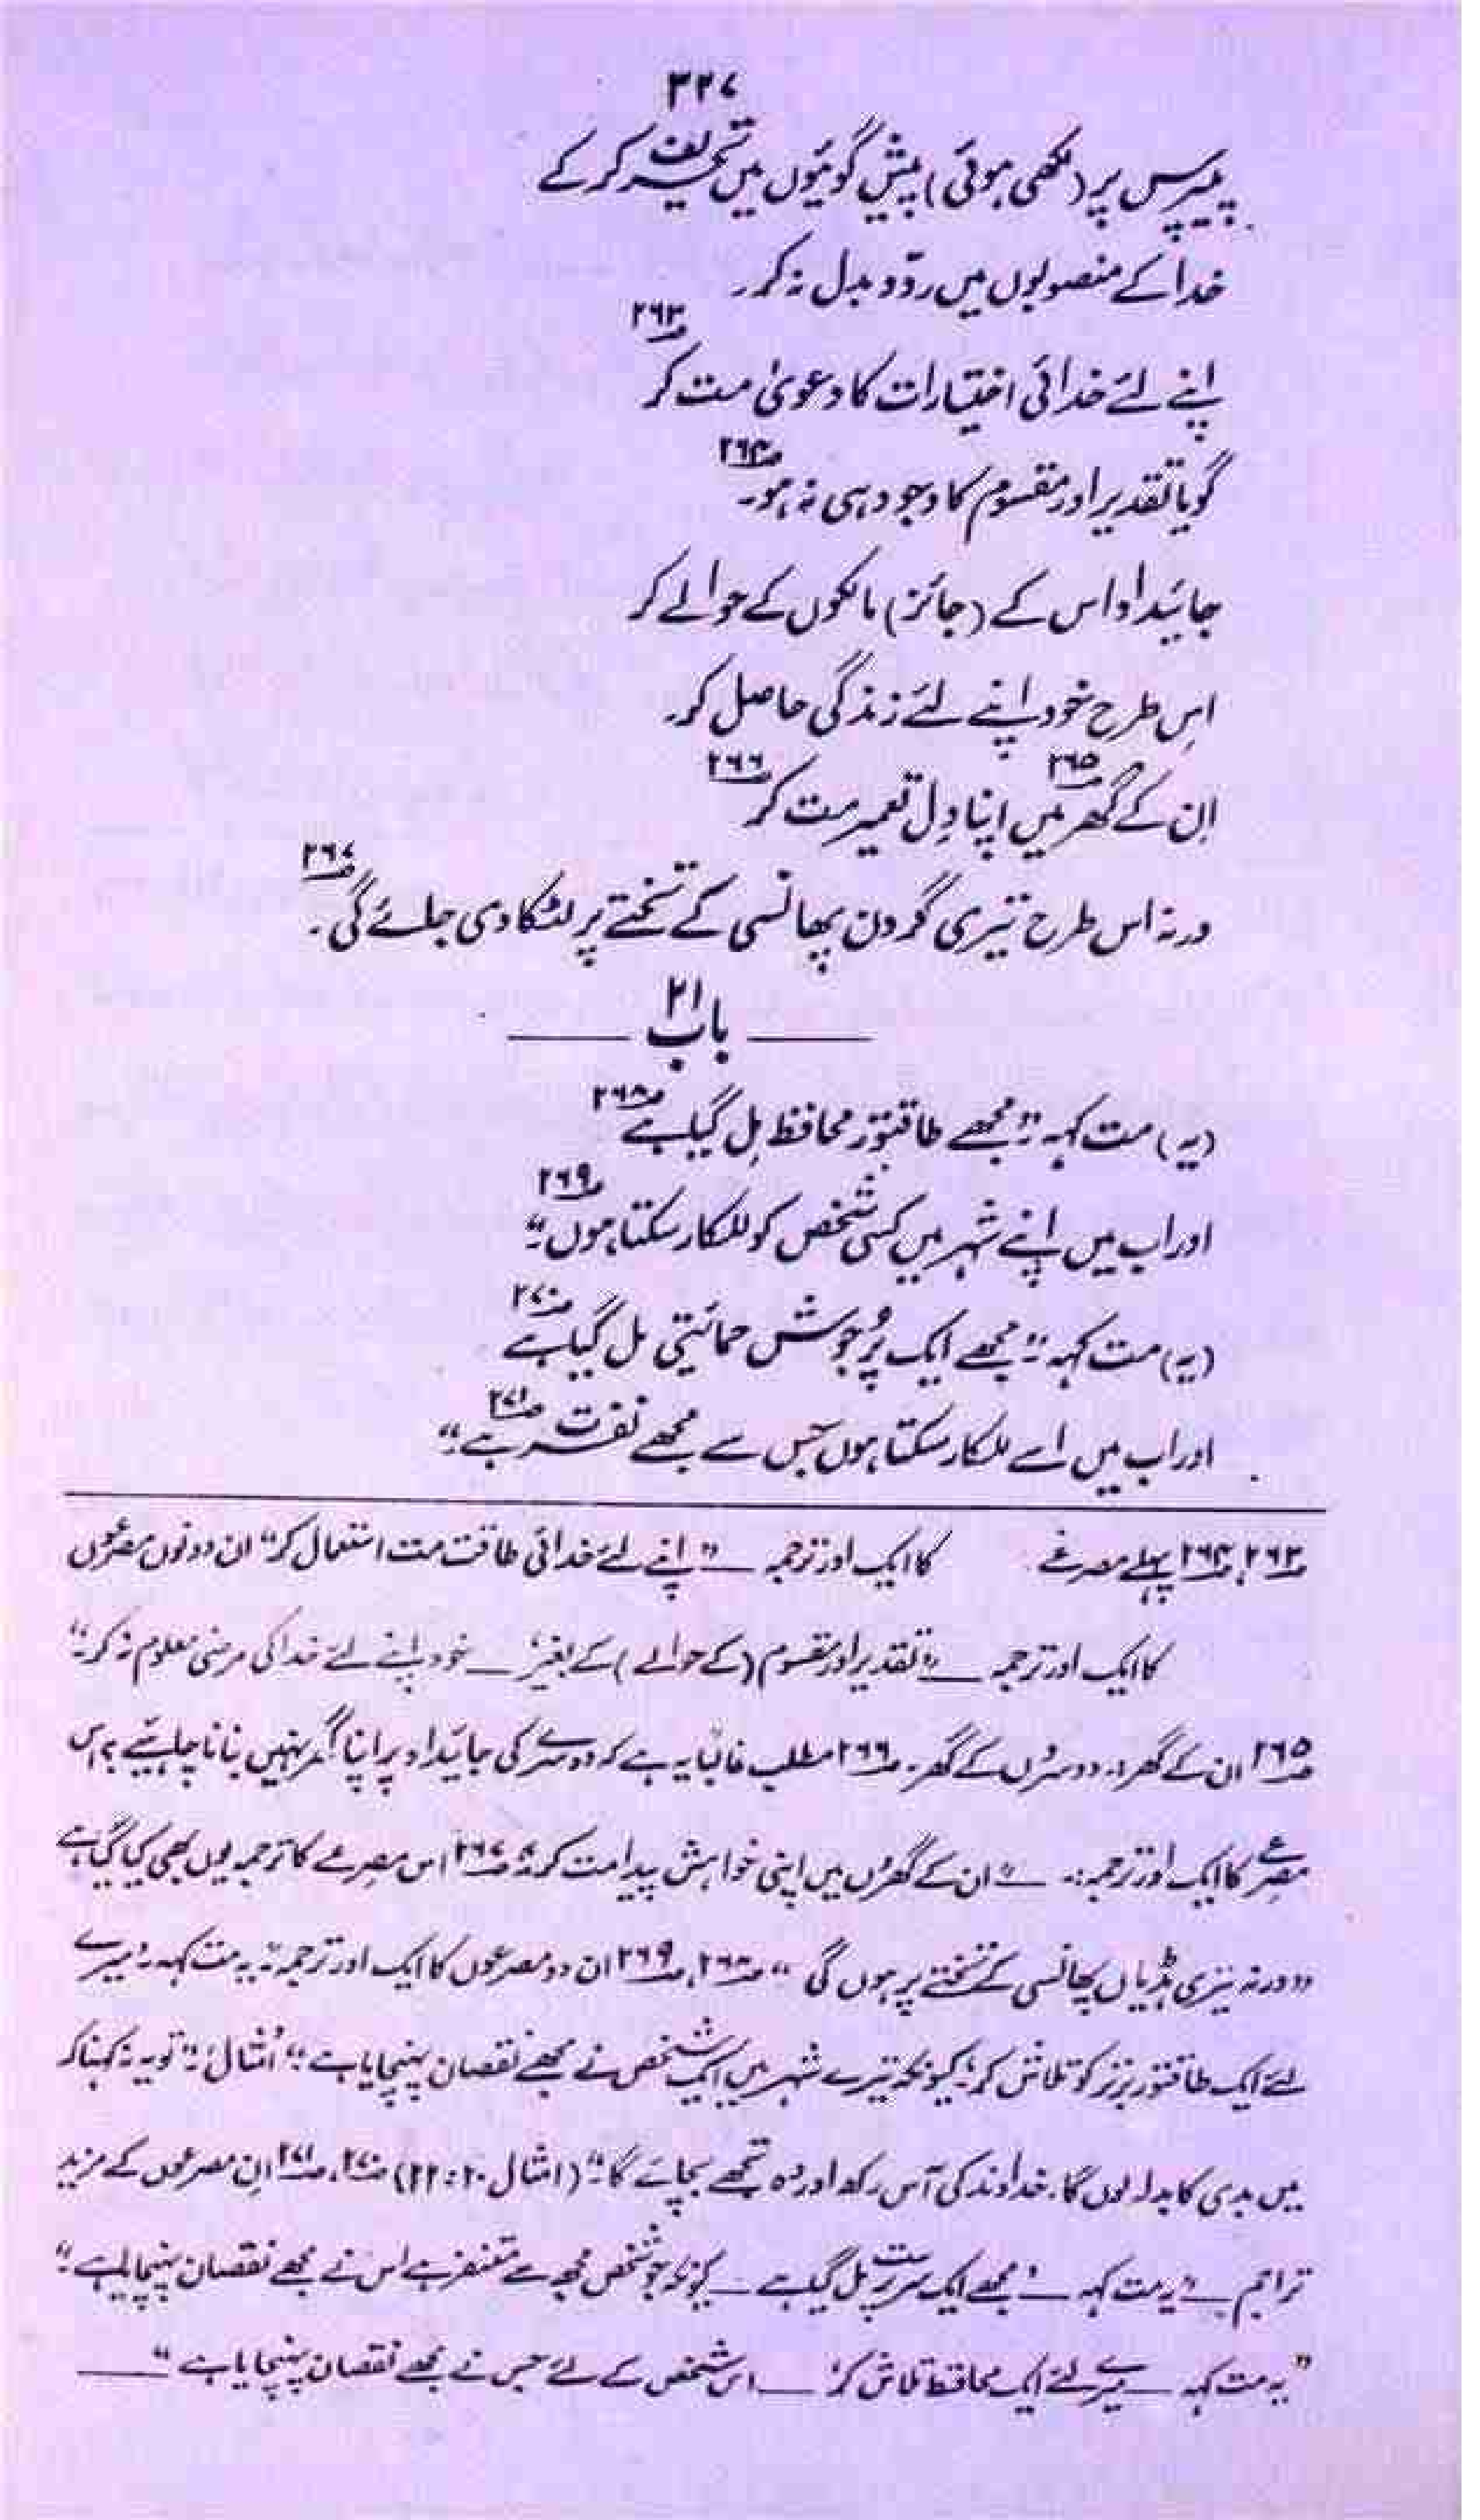 ۳۲۷
پیپرس پر (لکھی ہوئی) پیش گوئیوں میں تحریف کر کے
خدا کے منصوبوں میں ردّ و بدل نہ کر۔
اپنے لئے خدائی اختیارات کا دعویٰ مت کر ۲۶۳؎
گویا تقدیر اور مقسوم کا وجود ہی نہ ہو۔ ۲۶۴؎
جائیداد اس کے (جائز) مالکوں کے حوالے کر
اِس طرح خود اپنے لئے زندگی حاصل کر۔
اِن کے گھر ۲۶۵؎ میں اپنا دِل تعمیر مت کر ۲۶۶؎
ورنہ اس طرح تیری گردن پھانسی کے تختے پر لٹکا دی جائے گی۔ ۲۶۷؎
باب ۲۱
(یہ) مت کہہ :" مجھے طاقتور محافظ مِل گیا ہے ۲۶۸؎
اور اب میں اپنے شہر میں کسی شخص کو للکار سکتا ہوں۔" ۲۶۹؎
(یہ) مت کہہ :" مجھے ایک پُرجوش حمائیتی مل گیا ہے ۲۷۰؎
اور اب میں اسے للکار سکتا ہوں جس سے مجھے نفرت ہے۔" ۲۷۱؎
۲۶۳؎، ۲۶۴؎ پہلے مصرعے کا ایک اور ترجمہ — "اپنے لئے خدائی طاقت مت استعمال کر" ان دونوں مصرعوں
کا ایک اور ترجمہ — "تقدیر اور مقسوم (کے حوالے) کے بغیر — خود اپنے لئے خدا کی مرضی معلوم نہ کر۔"
۲۶۵؎ ان کے گھر :۔ دوسروں کے گھر۔ ۲۶۶؎ مطلب غالباً یہ ہے کہ دوسرے کی جائیداد پر اپنا گھر نہیں بنانا چاہئیے ؟ اس
مصرعے کا ایک اور ترجمہ :۔ — "ان کے گھروں میں اپنی خواہش پیدا مت کر۔" ۲۶۷؎ اس مصرعے کا ترجمہ یوں بھی کیا گیا ہے
"ورنہ تیری ہڈیاں پھانسی کے تختے پر ہوں گی" ۲۶۸؎، ۲۶۹؎ ان دو مصرعوں کا ایک اور ترجمہ :" یہ مت کہہ : میرے
لئے ایک طاقتور برتر کو تلاش کر، کیونکہ تیرے شہر میں ایک شخص نے مجھے نقصان پہنچایا ہے۔" اَمثال :" تو یہ نہ کہنا کہ
میں بدی کا بدلہ لوں گا۔ خداوند کی آس رکھ اور وہ تجھے بچائے گا۔" (امثال ۲۰ : ۲۲) ۲۷۰؎، ۲۷۱؎ اِن مصرعوں کے مزید
تراجم — "یہ مت کہہ — 'مجھے ایک سرپرست مل گیا ہے — کیونکہ جو شخص مجھ سے متنفر ہے اس نے مجھے نقصان پہنچایا ہے۔"
"یہ مت کہہ — میرے لئے ایک محافظ تلاش کر — اس شخص کے لئے جس نے مجھے نقصان پہنچایا ہے" —